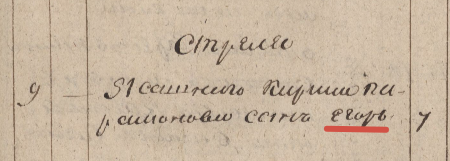 Стрелео
9 — Ясашного Кирила Па-
рамонова сынъ Егоръ 7